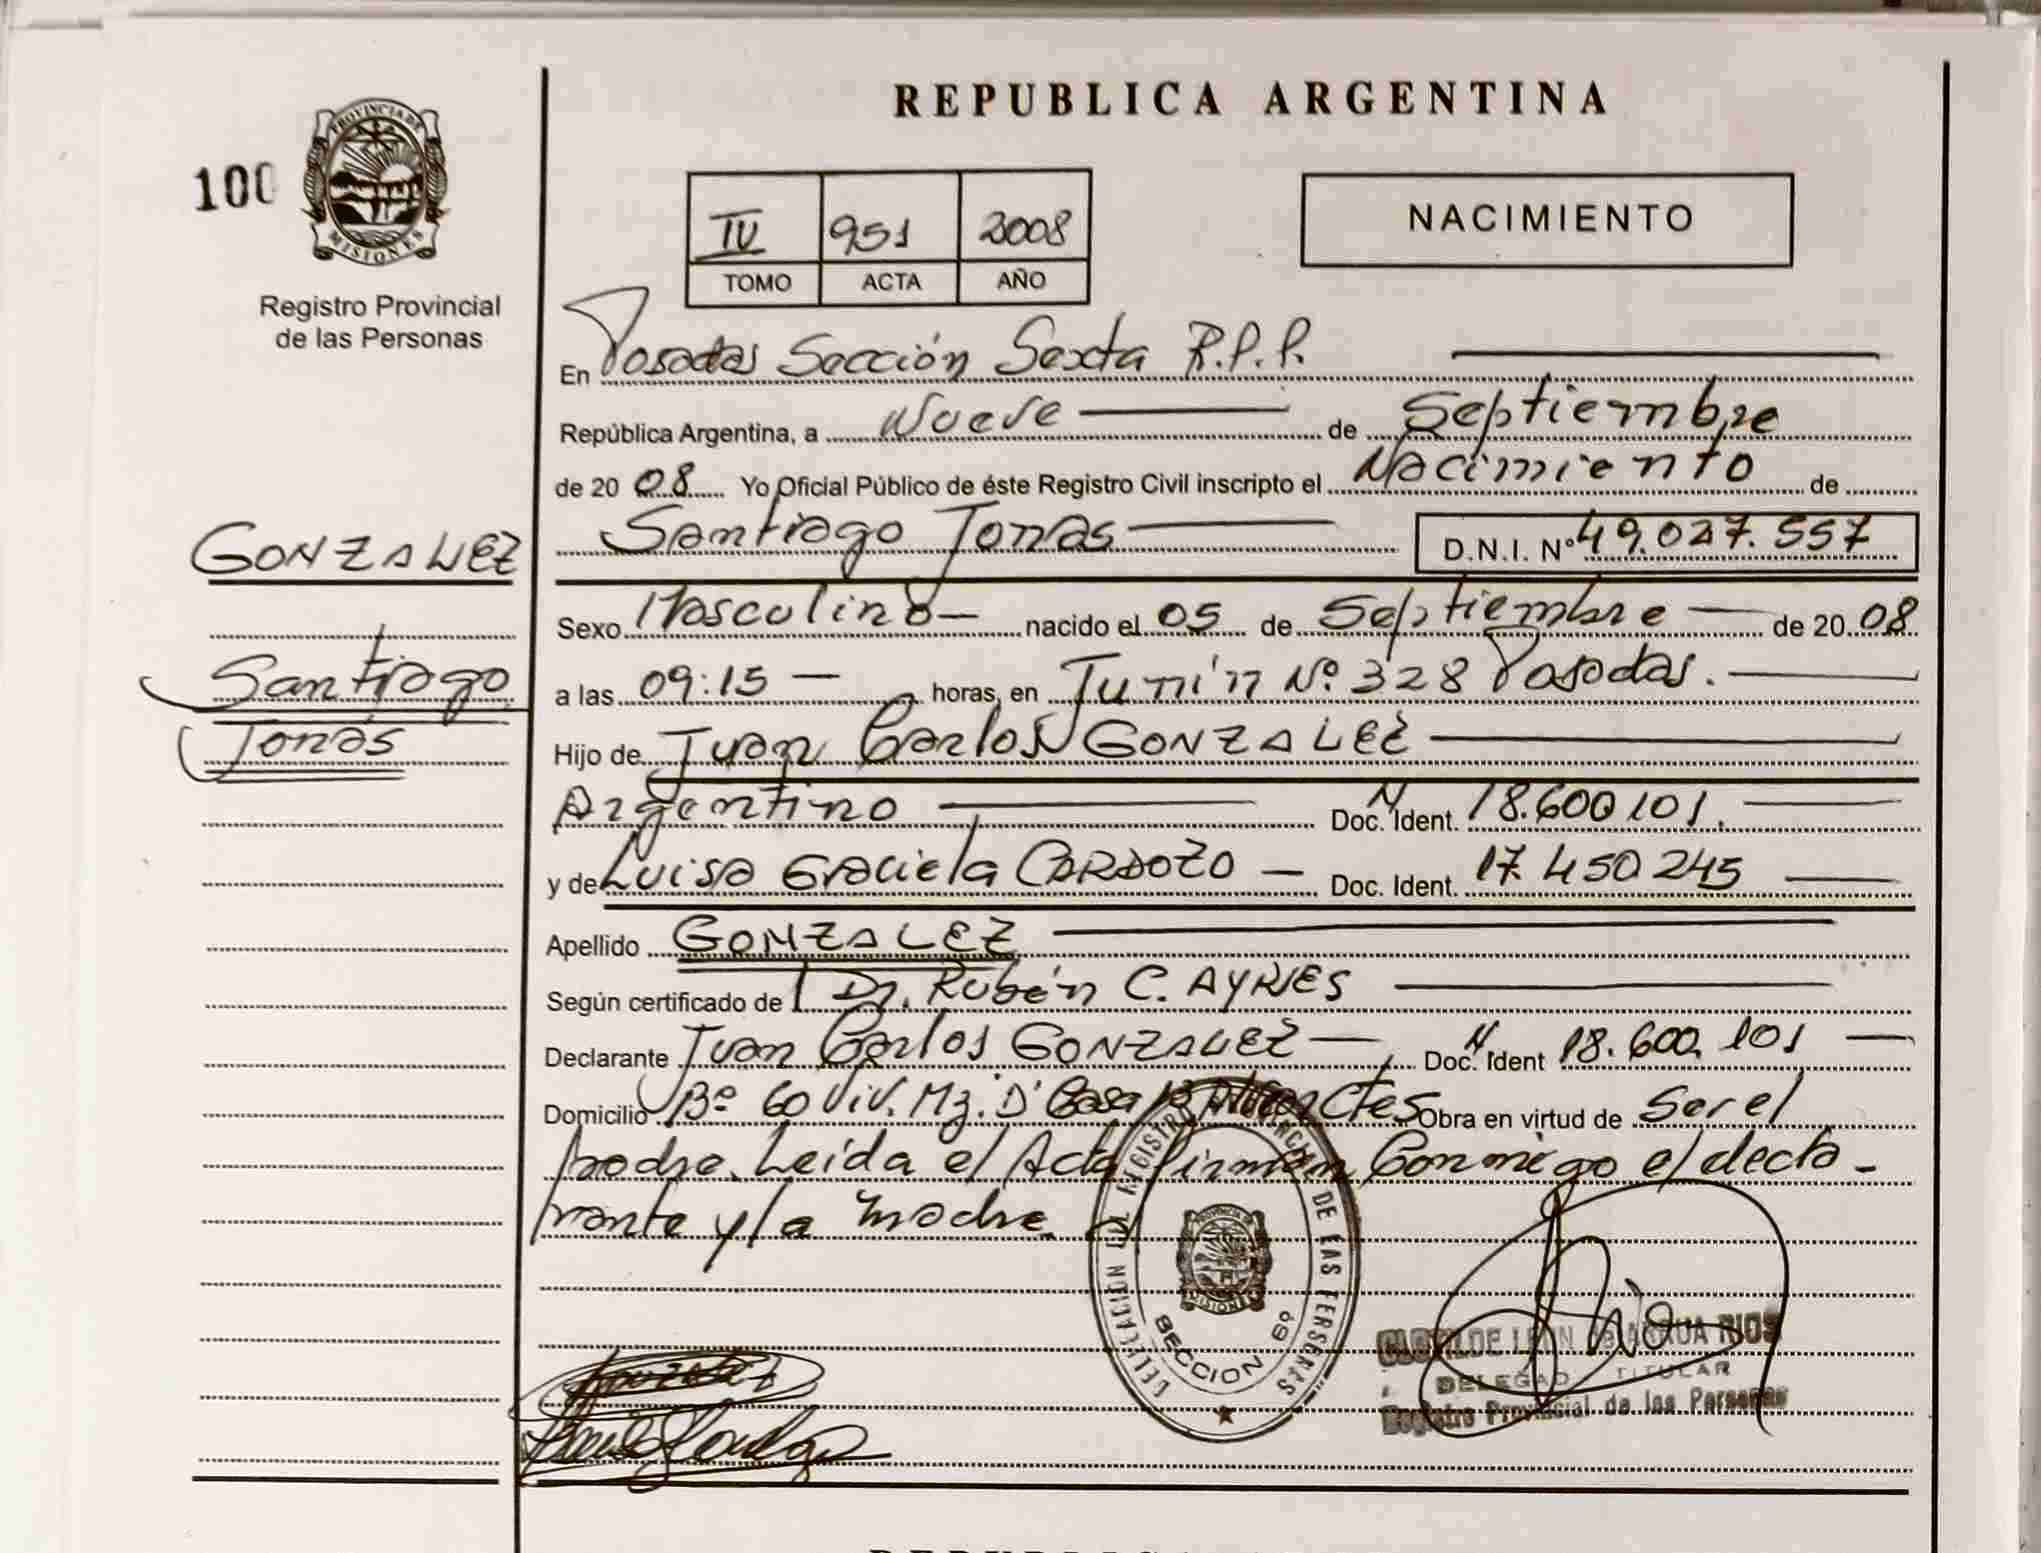 REPUBLICA ARGENTINA
100
PROVINCIA DE
MISIONES
Registro Provincial
de las Personas
IV 951 2008
TOMO ACTA AÑO
NACIMIENTO
En Posadas Sección Sexta R.P.P.
República Argentina, a Nueve de Septiembre
de 2008 Yo Oficial Público de éste Registro Civil inscripto el Nacimiento de
Santiago Jonas D.N.I. Nº 49.027.557
GONZALEZ
Santiago
Jonás
Sexo Masculino nacido el 05 de Septiembre de 2008
a las 09:15 horas, en Junín Nº 328 Posadas.
Hijo de Juan Carlos GONZALEZ
Argentino Doc. N Ident. 18.600 101.
y de Luisa Graciela CARDOZO Doc. Ident. 17.450 245
Apellido GONZALEZ
Según certificado de Dr. Rubén C. AYRES
Declarante Juan Carlos GONZALEZ Doc. N Ident 18.600.101
Domicilio Bº 60 Viv. Mz. D' Casa 13 Ctes Obra en virtud de Ser el
padre. Leída el Acta firman Conmigo el decla-
rante y la madre.
DELEGACION DEL REGISTRO PROVINCIAL DE LAS PERSONAS
MISIONES
SECCION 6º
CLOTILDE LEON de RIOS
DELEGAD TITULAR
Registro Provincial de las Personas